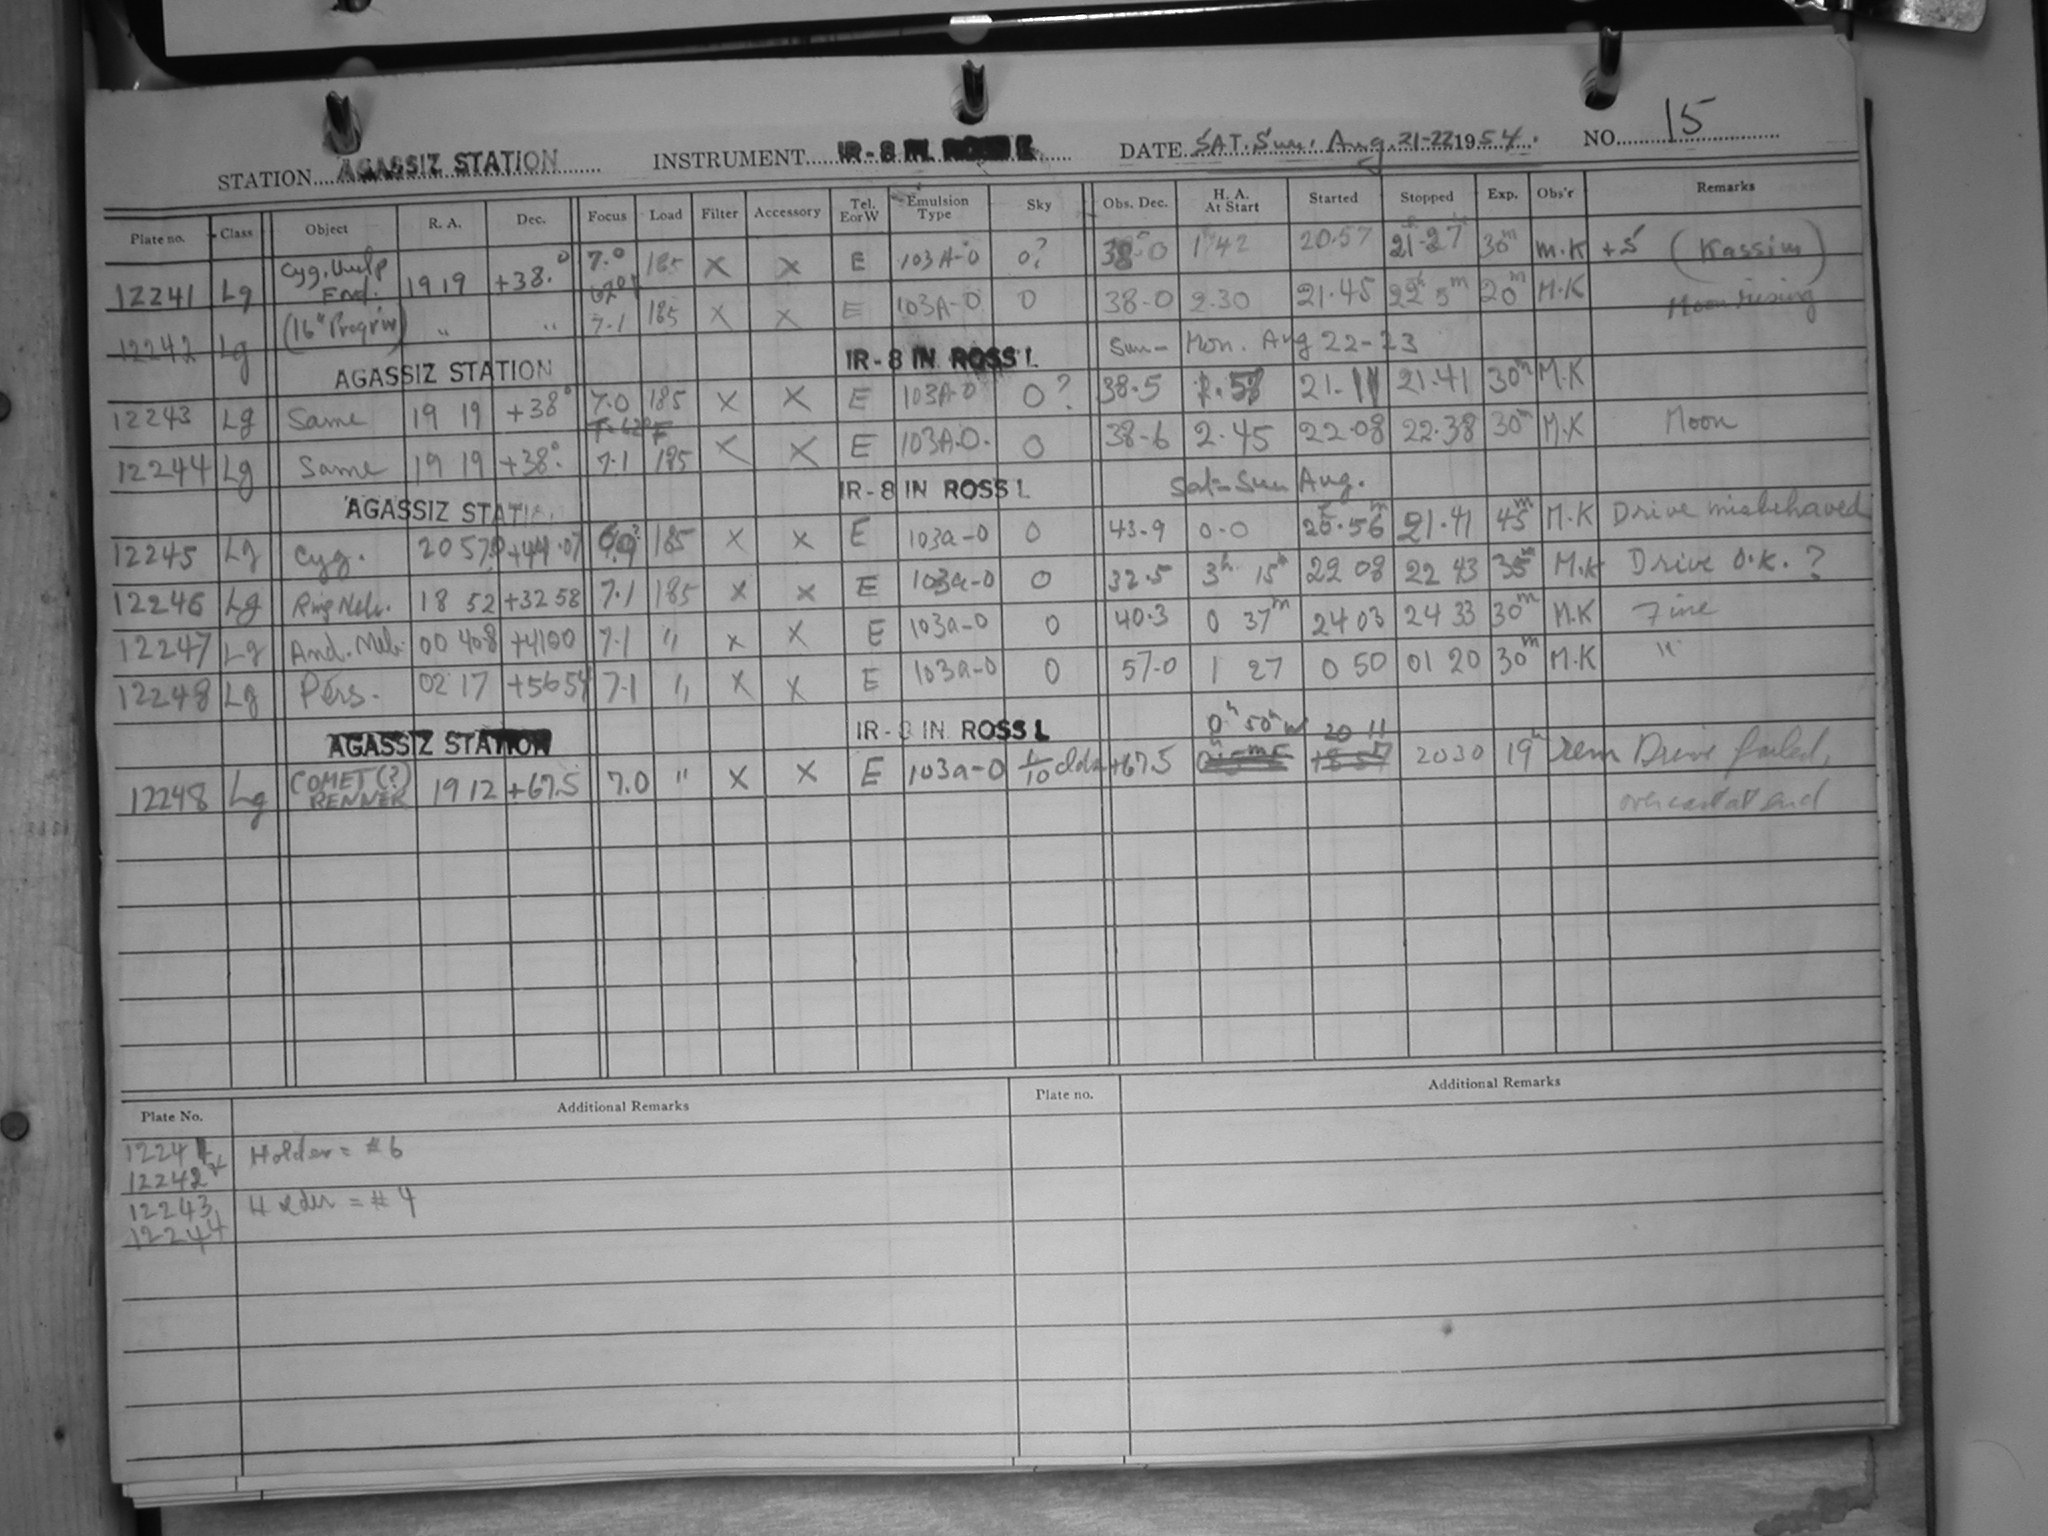 STATION AGASSIZ STATION INSTRUMENT IR-8 IN ROSS DATE SAT. Sun. Aug. 21-22 1954. NO. 15
Plate no. Class Object R. A. Dec. Focus Load Filter Accessory Tel. E or W Emulsion Type Sky Obs. Dec. H. A. At Start Started Stopped Exp. Obs'r Remarks
12241 Lg Cyg. Vulp End. 19 19 +38.° 7.0 185 X X E 103A-O O? 38.0 1 42 20.57 21.27 30m M.K +5 (Kassim)
12242 Lg (16" Progr'm) " " 7.1 185 X X E 103A-O O 38.0 2.30 21.45 22h 5m 20m M.K Moon rising
AGASSIZ STATION IR-8 IN ROSS L Sun - Mon. Aug 22-23
12243 Lg Same 19 19 +38° 7.0 185 X X E 103A-O O? 38.5 1.58 21.11 21.41 30m M.K
12244 Lg Same 19 19 +38°. 7.1 185 X X E 103A-O. O 38.6 2.45 22.08 22.38 30m M.K Moon
AGASSIZ STATION IR-8 IN ROSS L Sat - Sun Aug.
12245 Lg Cyg. 20 57.0 +44.07 185 X X E 103a-O O 43.9 0.0 20.56m 21.41 45m M.K Drive misbehaved
12246 Lg Ring Neb. 18 52 +32 58 7.1 185 X X E 103a-O O 32.5 3h 15m 22 08 22 43 35m M.K Drive O.K. ?
12247 Lg And. Neb. 00 40.8 +4100 7.1 " X X E 103a-O O 40.3 0 37m 24 03 24 33 30m M.K Fine
12248 Lg Pers. 02 17 +56 54 7.1 " X X E 103a-O O 57.0 1 27 0 50 01 20 30m M.K "
AGASSIZ STATION IR-8 IN ROSS L 0h 50m W 20 11
12248 Lg COMET(?) RENNER 19 12 +67.5 7.0 " X X E 103a-O +67.5 2030 19m Drive failed,
overcast at end
Plate No. Additional Remarks Plate no. Additional Remarks
12241 Holder = #6
12242
12243 Holder = #4
12244